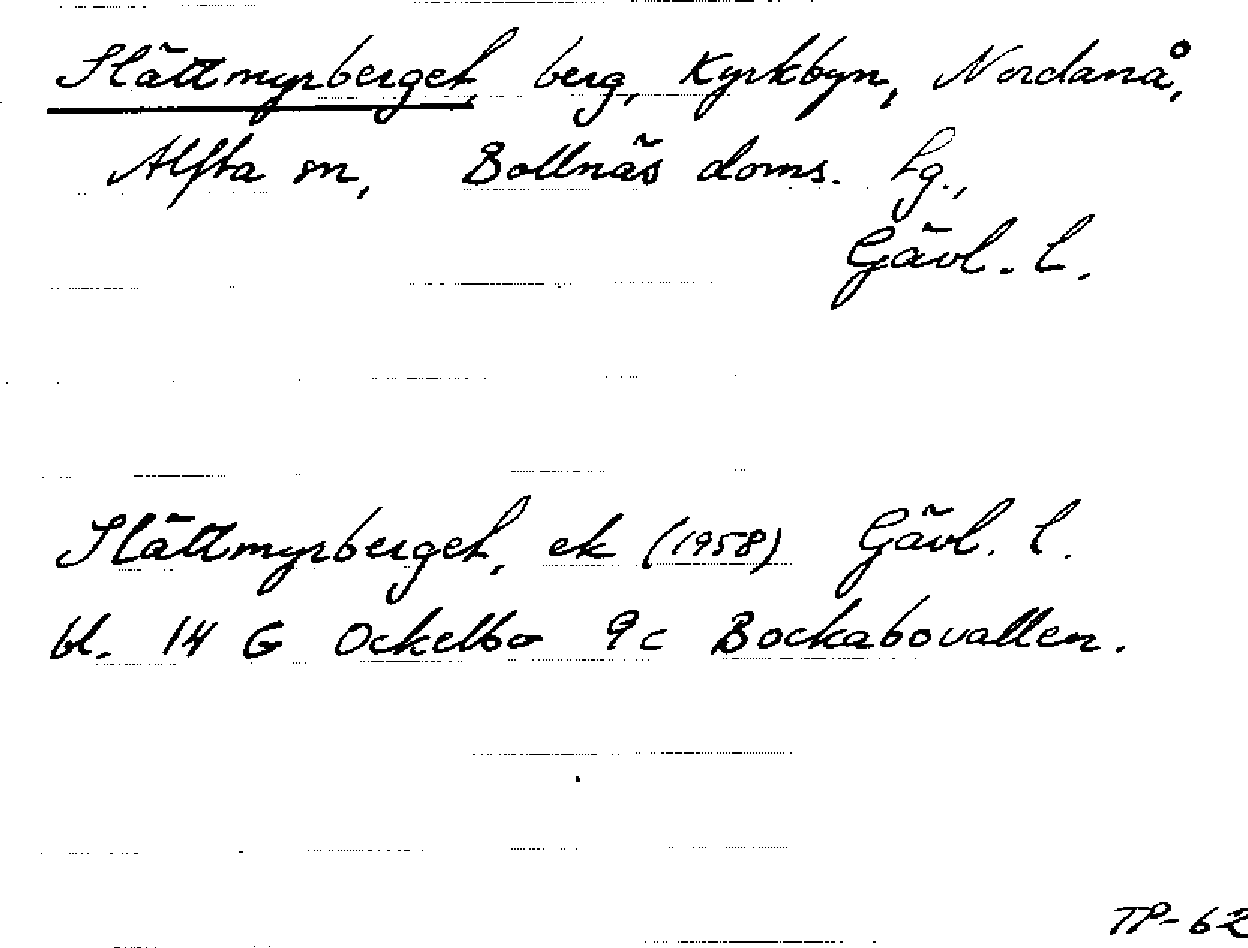 Slättmyrberget, berg, Kyrkbyn, Nordanå,
Alfta sn, Bollnäs doms. Lg.,
Gävl. l.
Slättmyrberget, ek (1958) Gävl. l.
bl. 14 G Ockelbo 9c Bockabovallen.
TP-62